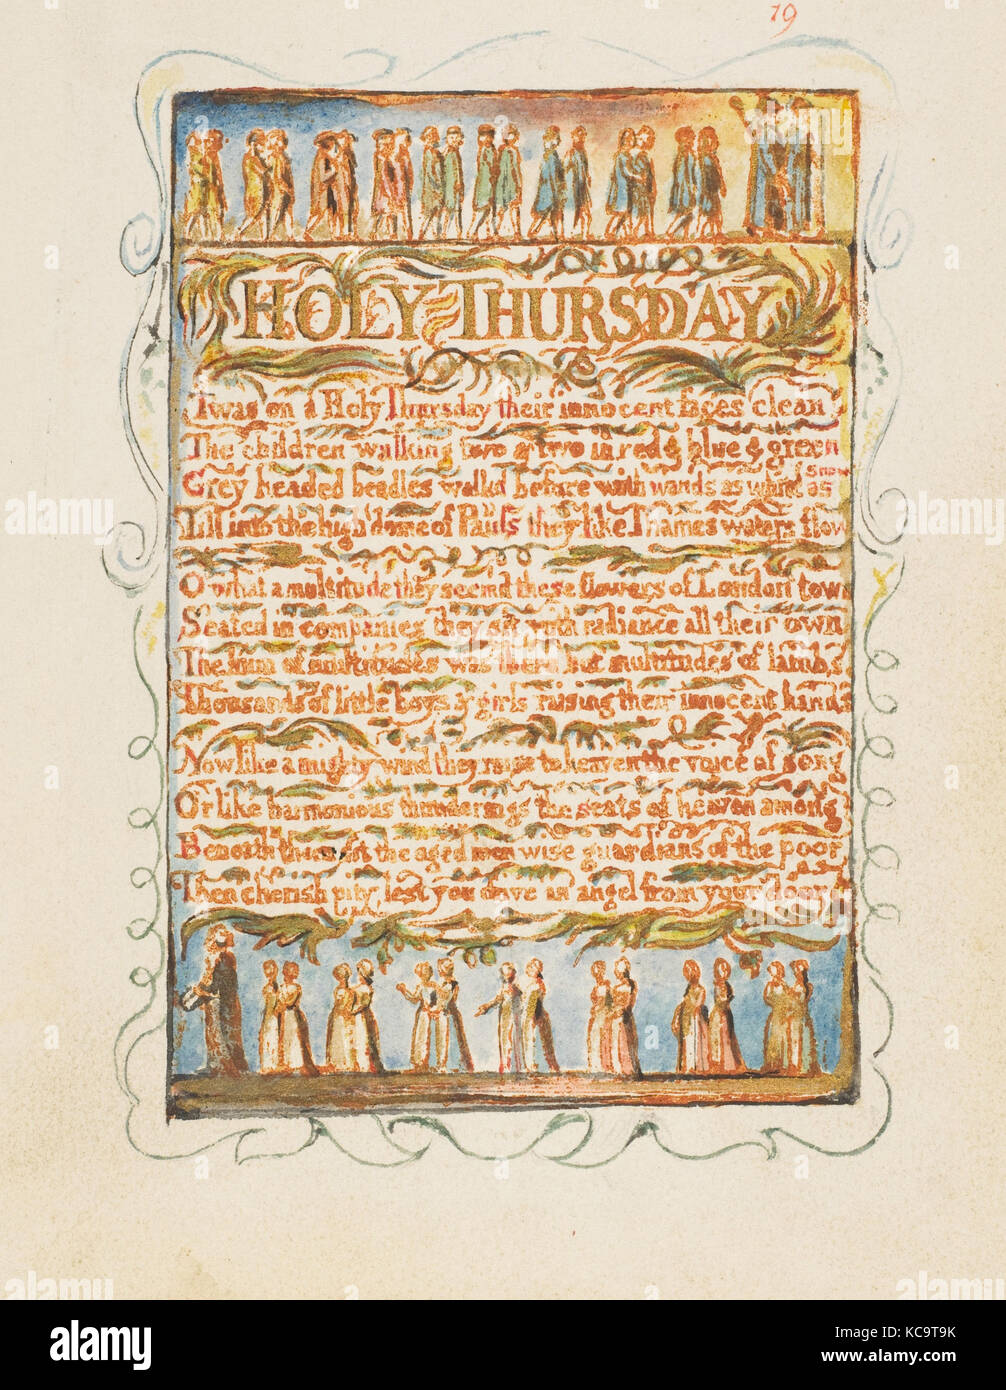 19
HOLY THURSDAY
Twas on a Holy Thursday their innocent faces clean
The children walking two & two in red & blue & green
Grey headed beadles walkd before with wands as white as snow
Till into the high dome of Pauls they like Thames waters flow
O what a multitude they seemd these flowers of London town
Seated in companies they sit with radiance all their own
The hum of multitudes was there but multitudes of lambs
Thousands of little boys & girls raising their innocent hands
Now like a mighty wind they raise to heaven the voice of song
Or like harmonious thunderings the seats of heaven among
Beneath them sit the aged men wise guardians of the poor
Then cherish pity, lest you drive an angel from your door
alamy
Image ID: KC9T9K
www.alamy.com